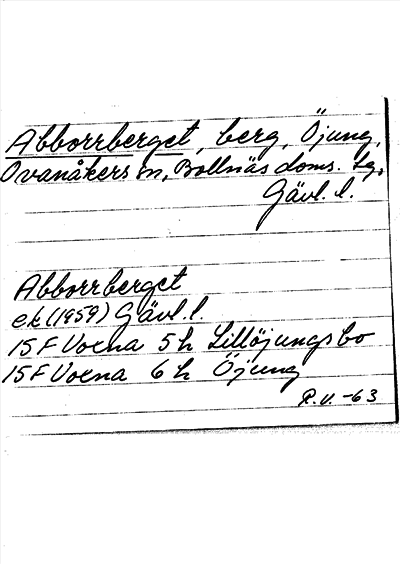 Abborrberget, berg, Öjung,
Ovanåkers sn, Bollnäs doms. tg,
Gävl. l.
Abborrberget
ek (1959) Gävl. l.
15 F Voxna 5 h Lillöjungsbo
15 F Voxna 6 h Öjung
R.V. -63